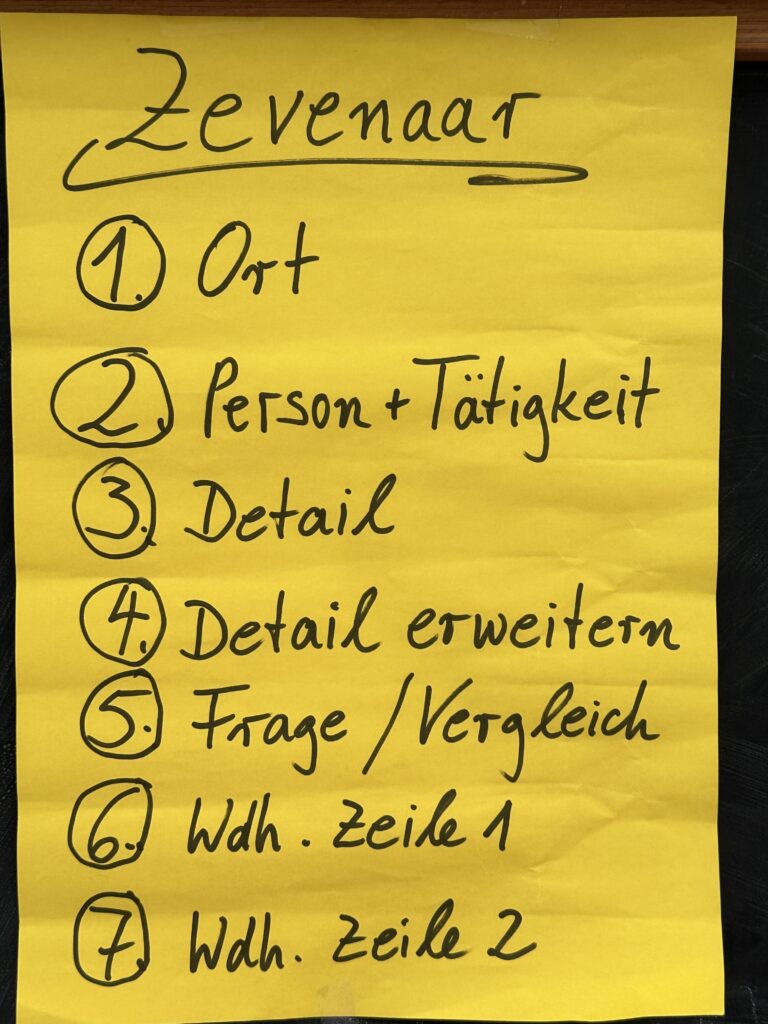 Zevenaar
1. Ort
2. Person + Tätigkeit
3. Detail
4. Detail erweitern
5. Frage / Vergleich
6. Wdh. Zeile 1
7. Wdh. Zeile 2